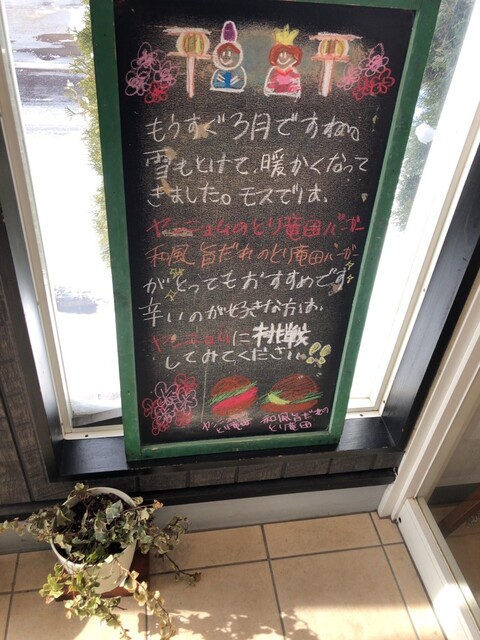 もうすぐ3月ですね。
雪もとけて、暖かくなって
きました。モスでは、
ヤンニョムのとり竜田バーガー
和風旨だれのとり竜田バーガー
がとってもおすすめです
辛いのが好きな方は、
ヤンニョムに挑戦
してみてください
ヤンニョム
とり竜田
和風旨だれ
とり竜田